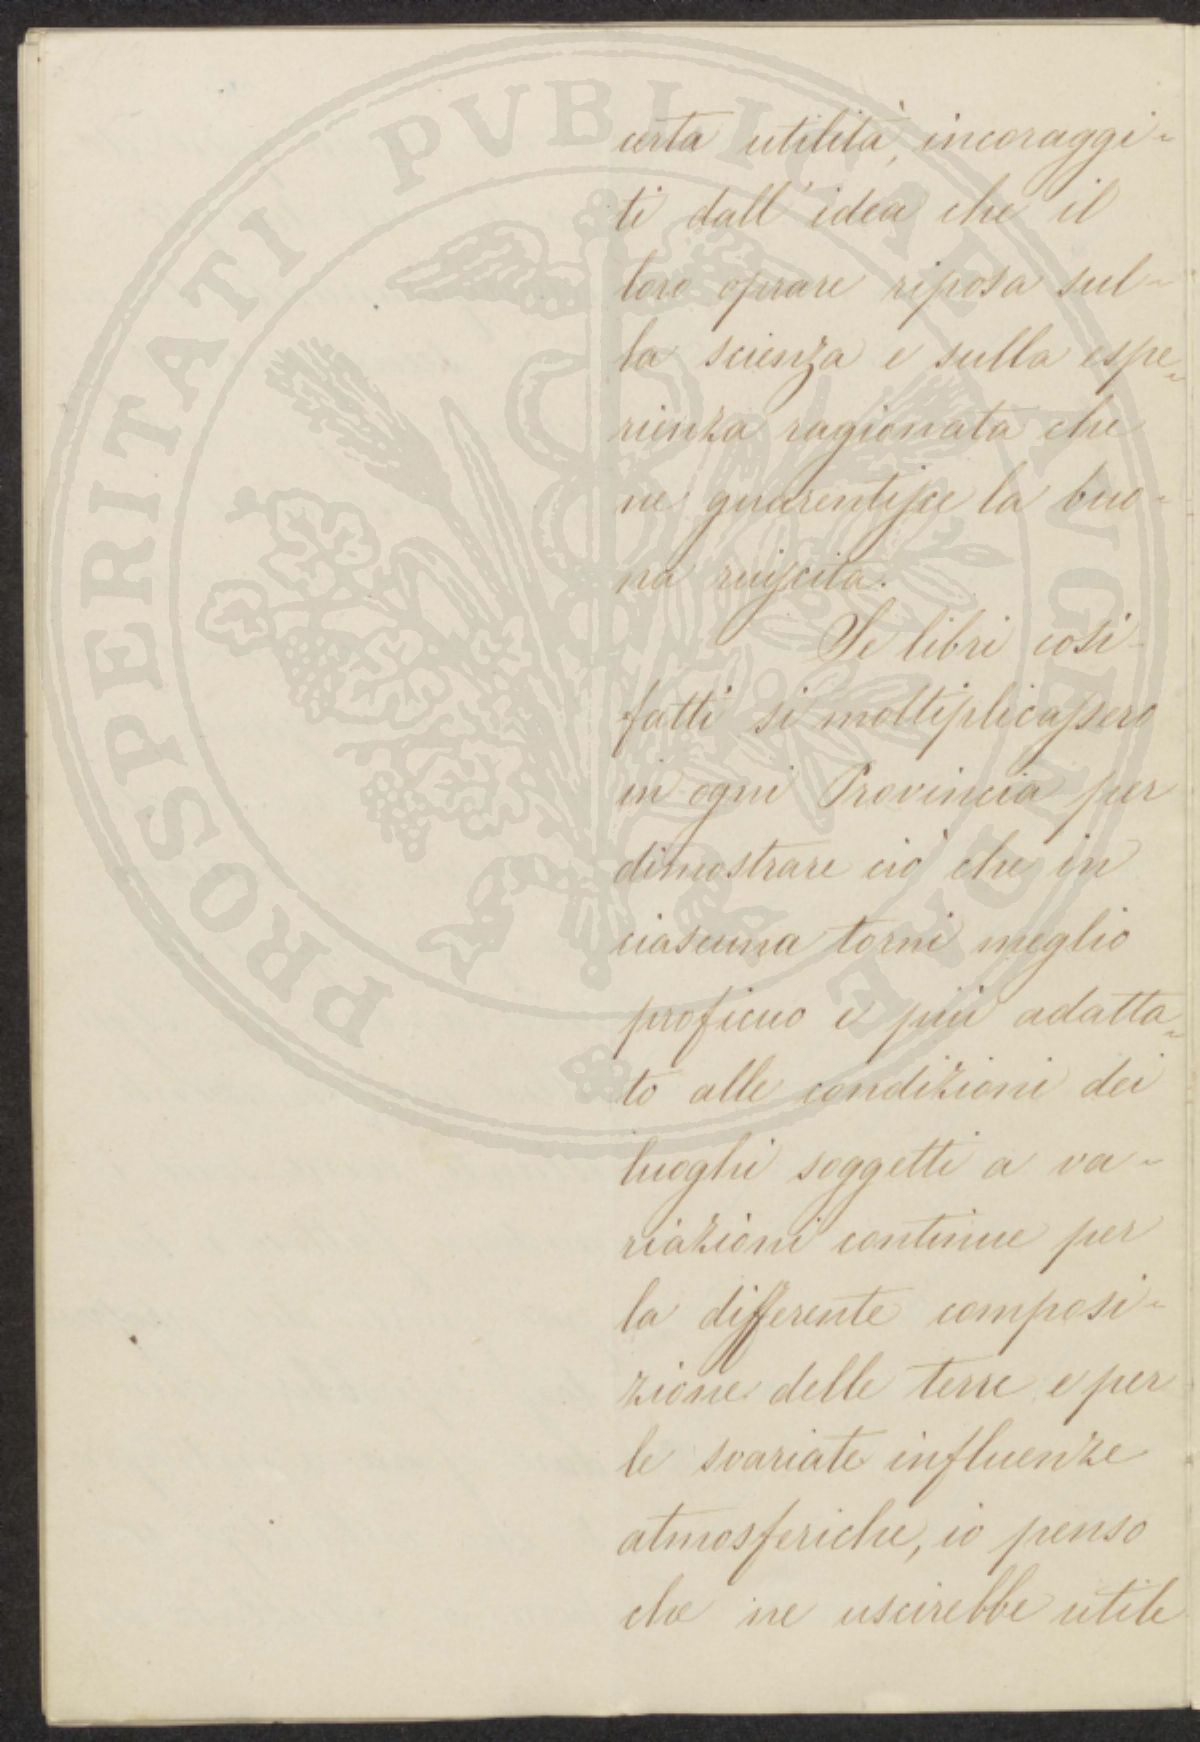 PROSPERITATI PVBLICAE AVGENDAE
certa utilità, incoraggi-
ti dall'idea che il
loro oprare riposa sul-
la scienza e sulla espe-
rienza ragionata che
ne guarentisce la buo-
na riuscita.
Se libri cosi-
fatti si moltiplicassero
in ogni Provincia per
dimostrare ciò che in
ciascuna torni meglio
proficuo e più adatta-
to alle condizioni dei
luoghi soggetti a va-
riazioni continue per
la differente composi-
zione delle terre e per
le svariate influenze
atmosferiche, io penso
che ne uscirebbe utile